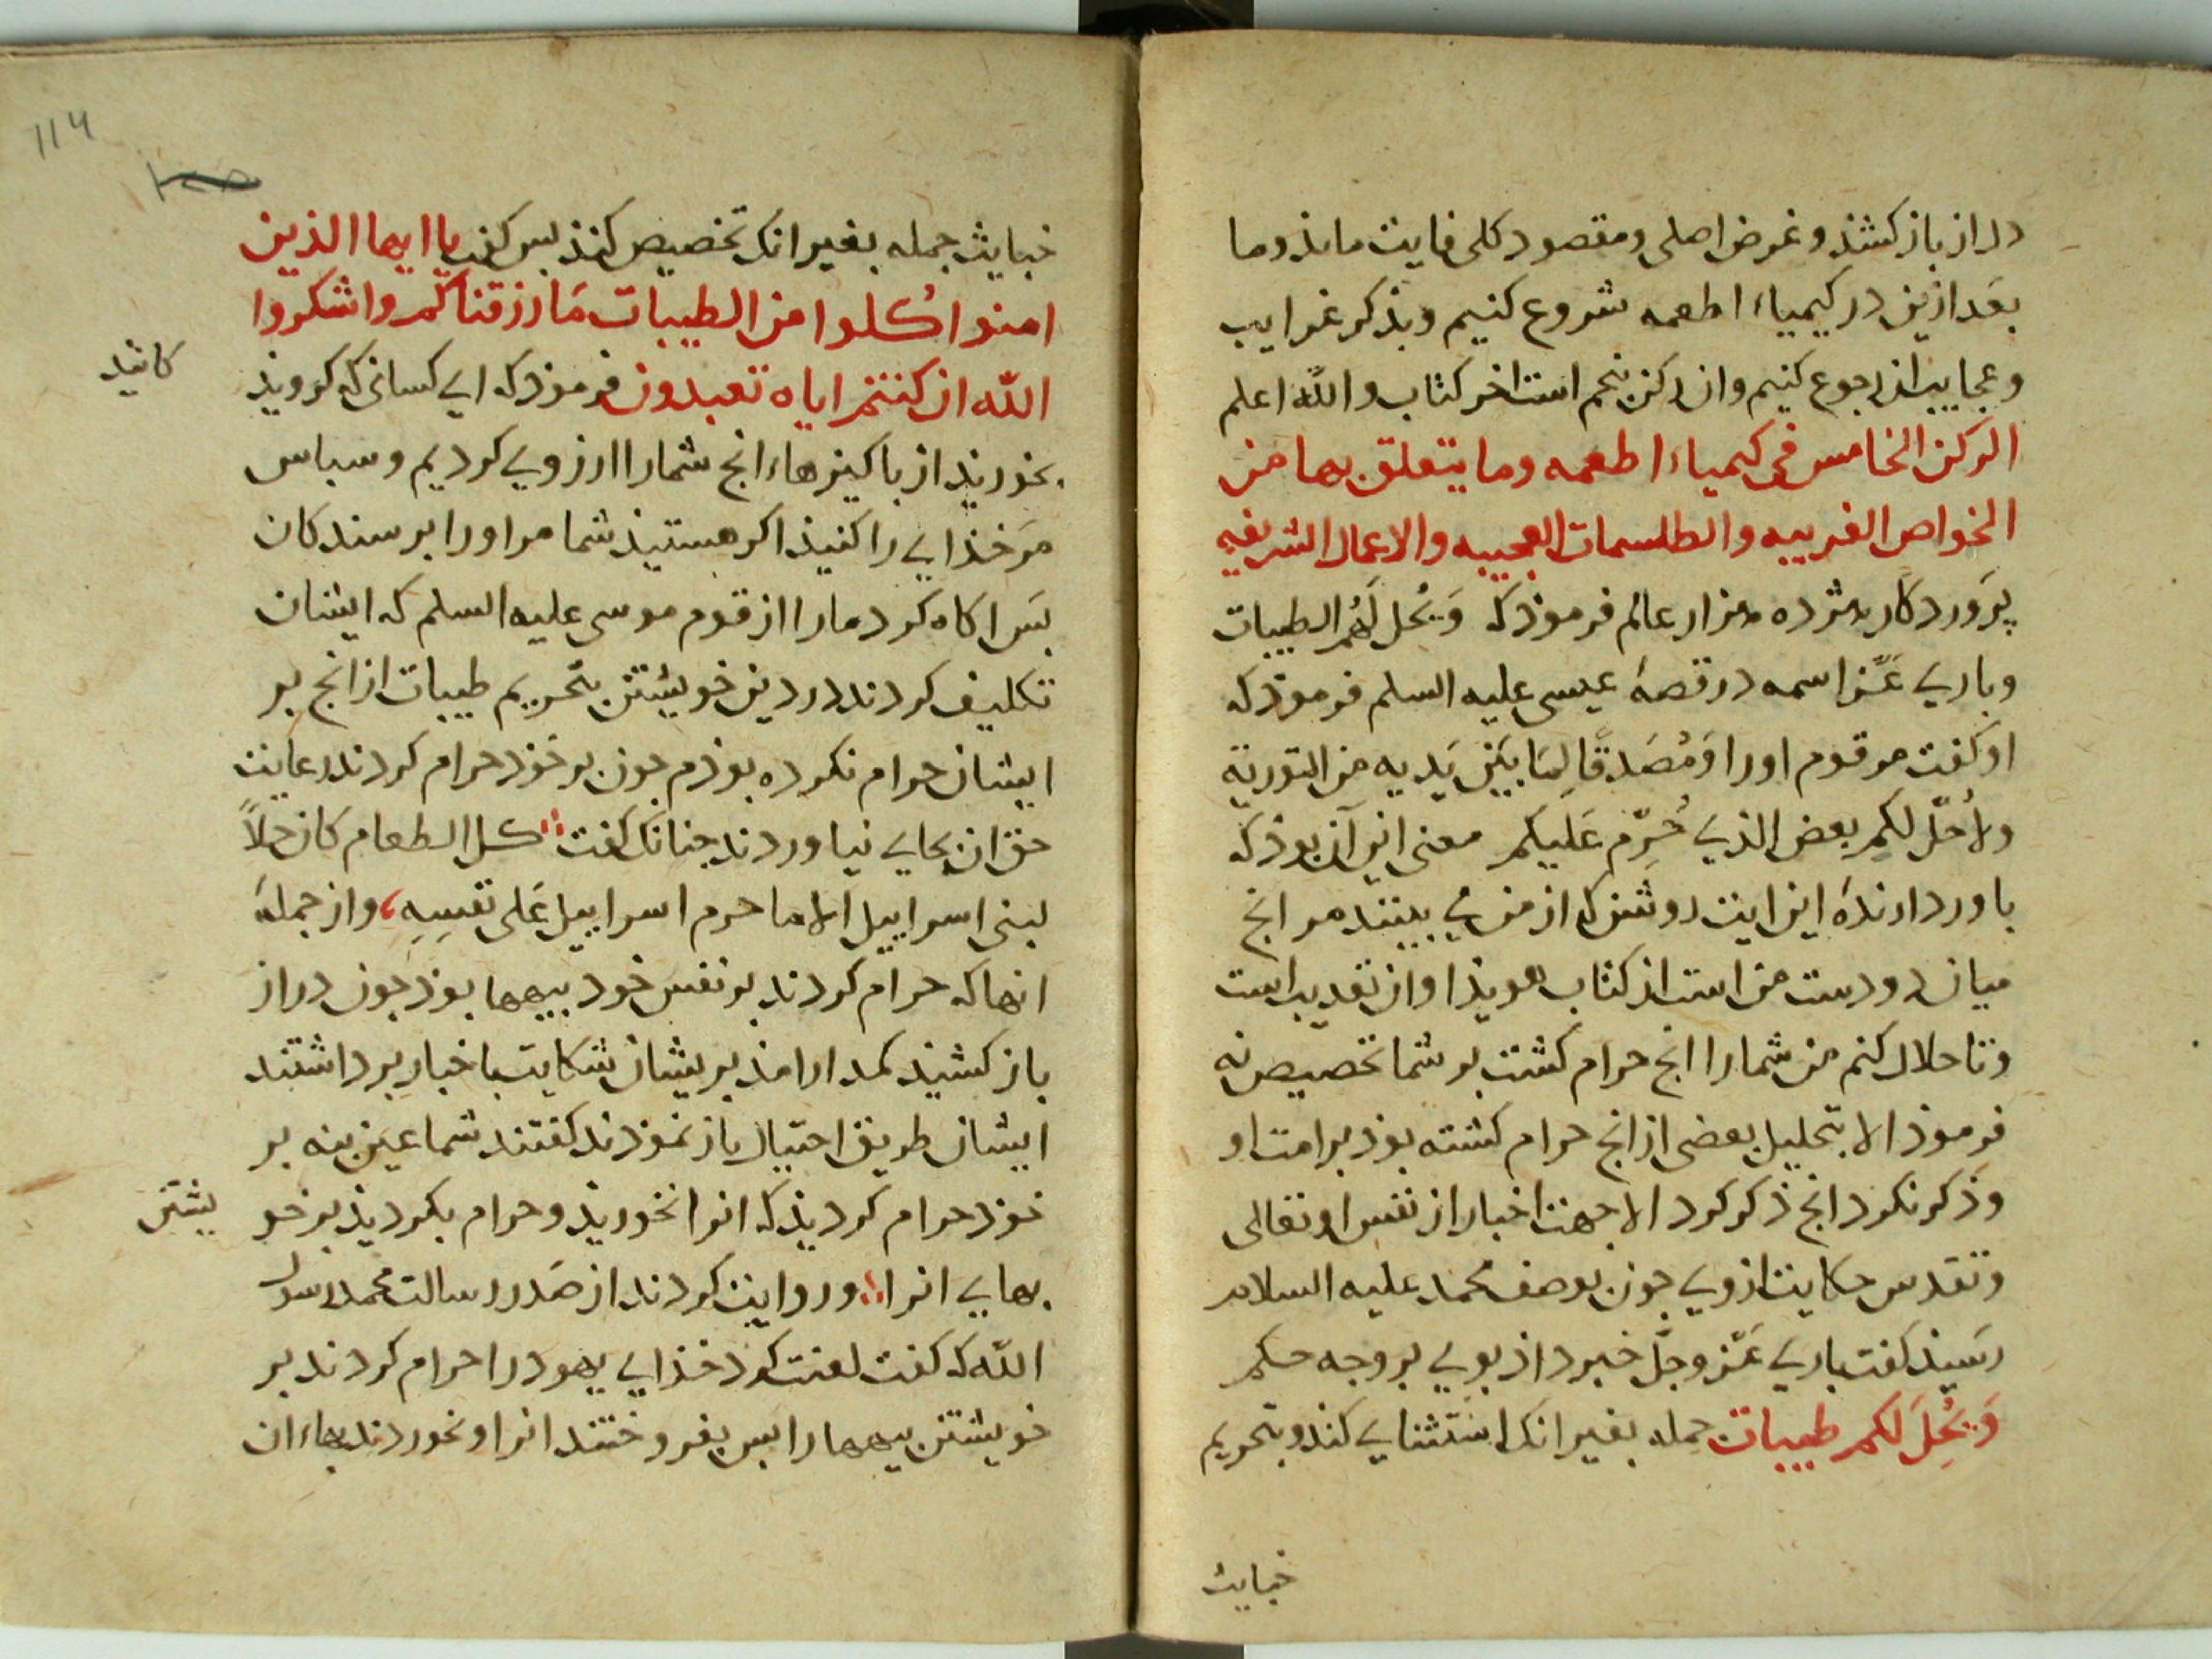 دراز باز کشذ و غرض اصلی و مقصود کلی فایت ماند و ما
بعد ازین در کیمیاء اطعمه شروع کنیم و بذکر غرایب
و عجایب ان رجوع کنیم و ان رکن پنجم است اخر کتاب والله اعلم
الرکن الخامس فی کیمیاء اطعمه وما یتعلق بها من
الخواص الغریبه والطلسمات العجیبه والاعمال الشریفه
پروردکار هژده هزار عالم فرموذ که وَیُحل لَهُم الطیبات
و باری عَزّ اسمه در قصهٔ عیسی علیه السلم فرموذ که
او کفت مر قوم اورا وَ مُصَدقًا لِمَا بَیْنَ یَدیه من التوریة
ولاُحلّ لکم بعض الذی حُرِّم عَلَیکم معنی این آن بوذ که
باور دارندهٔ این ایت روشن که از من می بینند هر انج
میان دو دست من است از کتاب هویذا و ان تقدیب است
و تا حلال کنم من شمارا انج حرام کشت بر شما تخصیص نه
فرموذ الا بتحلیل بعضی از انج حرام کشته بوذ بر امت او
و ذکر نکرد انج ذکر کرد الا جهت اخبار از نفس او تعالی
و تقدس حکایت از وی جون بوصف محمد علیه السلام
رسیذ کفت باری عَزّ وجلّ خبر داذ بوی بر وجه حکم
وَیُحِلَ لکم طیبات جمله بغیر انک استثنای کند و بتحریم
خبایث
114
خبایث جمله بغیر انک تخصیص کنذ بس کفت یا ایها الذین
امنوا کُلوا من الطیبات مَا رزقناکم واشکروا
الله ان کنتم ایاه تعبدون فرموذ که ای کسانی که کرویذ
کانید
بخوریذ از باکیزهاء انج شمارا ارزوی کردیم و سباس
مَر خذای را کنیذ اکر هستیذ شما مر اورا برسندکان
بَس اکاه کرد مارا از قوم موسی علیه السلم که ایشان
تکلیف کردند در دین خویشتن بتحریم طیبات از انج بر
ایشان حرام نکرده بوذم جون بر خوذ حرام کردند رعایت
حق ان بجای نیاوردند جنانک کفت کل الطعام کان حلاً
لبنی اسراییل الا ما حرم اسراییل عَلی نفسِهِ و از جملهٔ
انها که حرام کردند بر نفس خود بیهها بوذ جون دراز
باز کشیذ مدارا مذ بریشان شکایت باخبار برداشتند
ایشان طریق احتیال باز نموذند کفتند شما عین بنه بر
خوذ حرام کردیذ که انرا نخوریذ و حرام بکردیذ بر خو
یشتن
بهای انرا و روایت کردند از صَدر رسالت محمد رسول
الله که کفت لعنت کرد خذای یهود را حرام کردند بر
خویشتن بیهها را بس بفروختند انرا و نخوردند بهاء ان